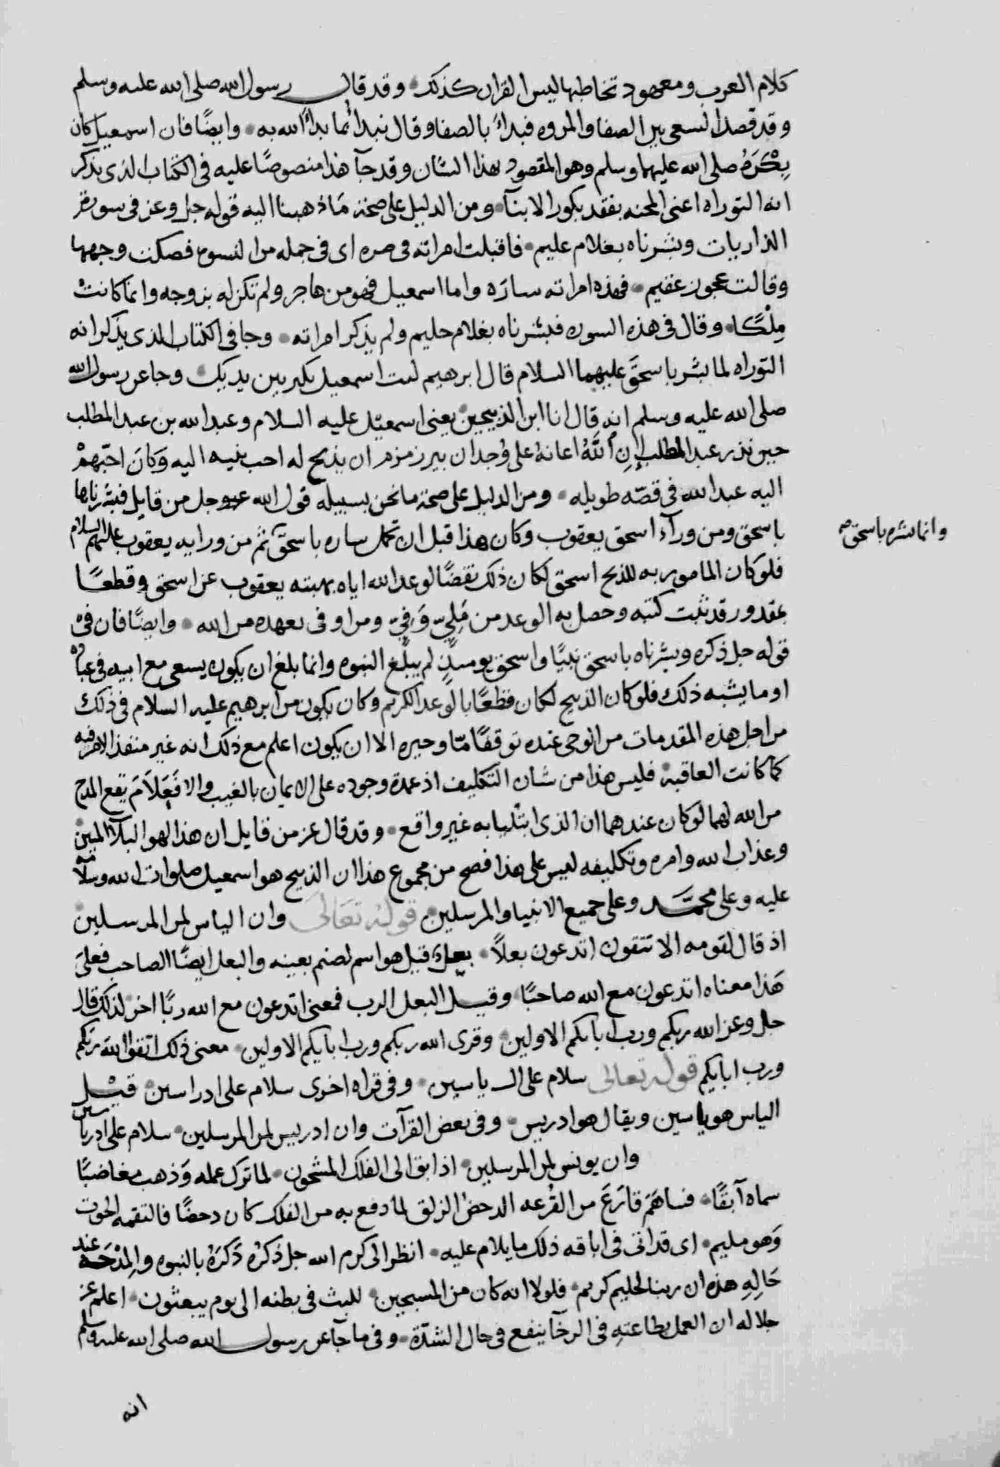 كلام العرب ومعهود تخاطبها ليس القران كذلك وقد قال رسول الله صلى الله عليه وسلم
وقد قصد السعى بين الصفا والمروه فبدا بالصفا وقال نبدا بما بدا الله به وايضًا فان اسمعيل كان
بِكْرَهُ صلى الله عليهما وسلم وهو المقصود بهذا الشان وقد جآ هذا منصوصًا عليه فى الكتاب الذى يذكر
انه التوراه اعنى المحنه بفقد بكور الابنآ ومن الدليل على صحة مَا ذهبنا اليه قوله جل وعز فى سورة
الذاريات وبشرناه بغلام عليم فاقبلت امراته فى صره اى فى جمله من النسوه فصكت وجهها
وقالت عجوز عقيم فهذه امراته سارَه واما اسمعيل فهو من هاجر ولم تكن له بزوجه وانما كانتْ
مِلْكًا وقال فى هذه السوره فبشرناه بغلام حليم ولم يذكر امراته وجا فى الكتاب الذى يذكر انه
التوراه لما بشر باسحقَ عليهما السلام قال ابرهيم ليت اسمعيل يكبر بين يديك وجا عن رسول الله
صلى الله عليه وسلم انه قال انا ابن الذبيحين يعنى اسمعيل عليه السلام وعبد الله بن عبد المطلب
حين نذر عبد المطلب ان اللهُ اعانهُ على وُجدان بير زمزم ان يذبح له احب بنيه اليه وكَانَ احبّهمْ
اليه عبد الله فى قصّه طويله ومن الدليل على صحة ما نحن بسبيله قول الله عز وجل من قايل فبشرناها
باسحق ومن ورآء اسحق يعقوب وكان هذا قبل ان تحمل ساره باسحق ثم من ورايه يعقوب عليهم السلام
وانما بشره باسحق
فلو كان المامور به للذبح اسحق لكان ذلك نقضًا لوعد الله اياه بهبته يعقوب عن اسحق وقطعًا
بمقدور قد ثبت كتبه وحصل به الوعد من مَلِىّ وَفِىّ ومن اوفى بعهده من الله وايضًا فان فىْ
قوله جل ذكره وبشرناه باسحق نبيًا واسحق يوميذٍ لم يبلغ النبوه وانما بلغ ان يكون يسعى مع ابيه فى عباده
او ما يشبه ذلك فلو كان الذبيح لكان قطعًا بالوعد الكريم وكان يكون من ابرهيم عليه السلام فى ذلك
من اجل هذه المقدمات من الوحى عنده توقفًا مّا وحيره الا ان يكون اعلم مع ذلك انه غير منفذ الامر فيه
كما كانت العاقبة فليس هذا من شان التكليف اذ عمدة وجوده على الايمان بالغيب والا فَعَلاَمَ يقع المدح
من الله لهما لو كان عندهما ان الذى ابتليا به غير واقع وقد قال عز من قايل ان هذا لهو البلآ المبين
وعذاب الله وامره وتكليفه ليس على هذا فصح من مجموع هذا ان الذبيح هو اسمعيل صلوات الله وسلامه
عليه وعلى محمّد وعلى جميع الانبيا والمرسلين قوله تعالى وان الياس لمن المرسلين
اذ قال لقومه الا تتقون اتدعون بعلاً بعل قيل هو اسم لصنم بعينه والبعل ايضًا الصاحب فعلىَ
هَذا معناه اتدعون مع الله صاحبًا وقيل البعل الرب فمعنى اتدعون مع الله ربًا اخر لذلك قال
جل وعز الله ربكم ورب ابايكم الاولين وقرى الله ربكم ورب ابايكم الاولين معنى ذلك اتقوا اللهَ ربّكم
ورب ابايكم قوله تعالى سلام على ال ياسين وفى قراه اخرى سلام على ادراسين قيْل
الياس هو ياسين ويقال هو ادريس وفى بعض القرآت وان ادريس لمن المرسلين سلام على ادرياسين
وان يونس لمن المرسلين اذ ابق الى الفلك المشحون لما ترك عمله وَذهب مغاضبًا
سماه آبقًا فساهَمَ قارَعَ من القُرعه الدحض الزلق لما دفع به من الفلك كان دحضًا فالتقمه الحوت
وَهو مليم اى قد اتى فى اباقه ذلك ما يلام عليه انظر الى كرم الله جل ذكرُهُ ذَكرَهُ بالنبوه والمِدْحَة عند
حَالِهِ هذه ان ربنا لحليم كريم فلولا انه كان من المسبحين للبث فى بطنه الى يوم يبعثون اعلم عز
جلاله ان العمل بطاعَتِهِ فى الرخآ ينفع فى حال الشدّة وفى ما جآ عن رسول الله صلى الله عليه وسلم
انه